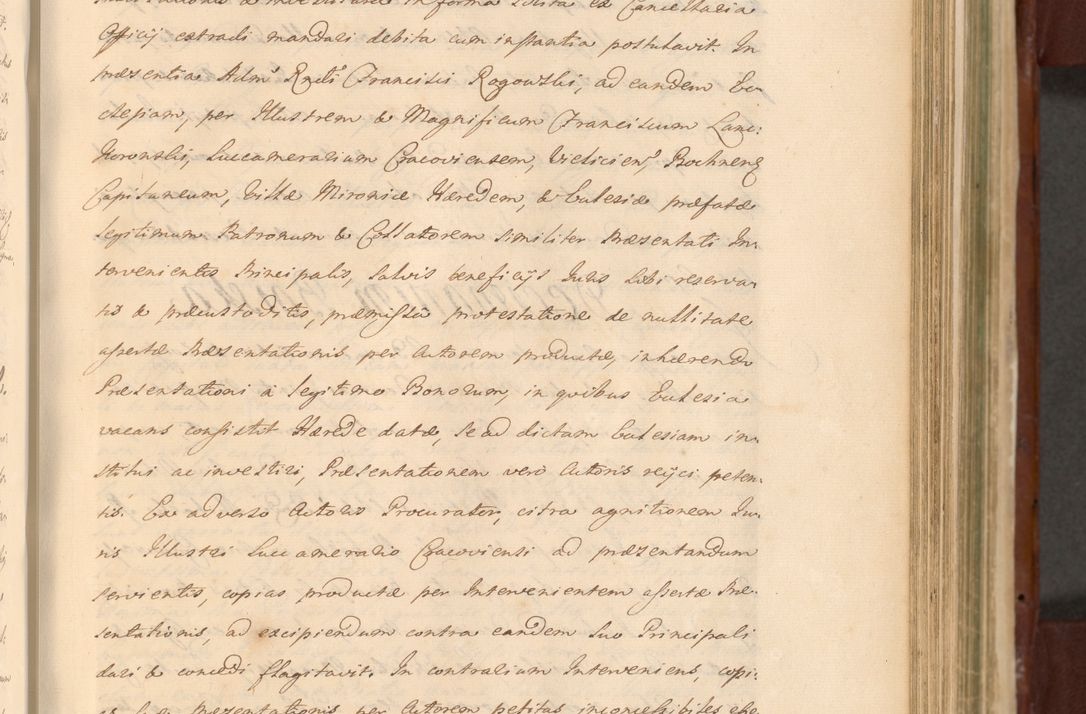 Officij extradi mandari debita cum instantia postulavit. In
præsentia Adm. Rndi Francisci Rogowski, ad eandem Ec-
clesiam, per Illustrem & Magnificum Franciscum Lanc:
koronski, Succamerarium Cracoviensem, Vielicien, Bochnenq
Capitaneum, Villæ Mironice Hæredem, & Ecclesiæ præfatæ
legitimum Patronum & Collatorem similiter Præsentati In-
tervenientis Principalis, salvis beneficijs Juris sibi reserva-
tis & præcustoditis, præmissâ protestatione de nullitate
assertæ Præsentationis per Actorem productæ, inhærendo
Præsentationi à legitimo Bonorum, in quibus Ecclesia
vacans consistit Hærede datæ, se ad dictam Ecclesiam in-
stitui ac investiri, Præsentationem vero Actoris rejici peten-
tis. Ex adverso Actoris Procurator, citra agnitionem Ju-
ris Illustri Succamerario Cracoviensi ad præsentandum
servientis, copias productæ per Intervenientem assertæ Præ-
sentationis, ad excipiendum contra eandem suo Principali
dari & concedi flagitavit. In contrarium Interveniens, copi-
as suæ Præsentationis per Actorem petitas inconcessibiles esse